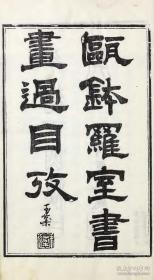 甌鉢羅室書
畫過目攷